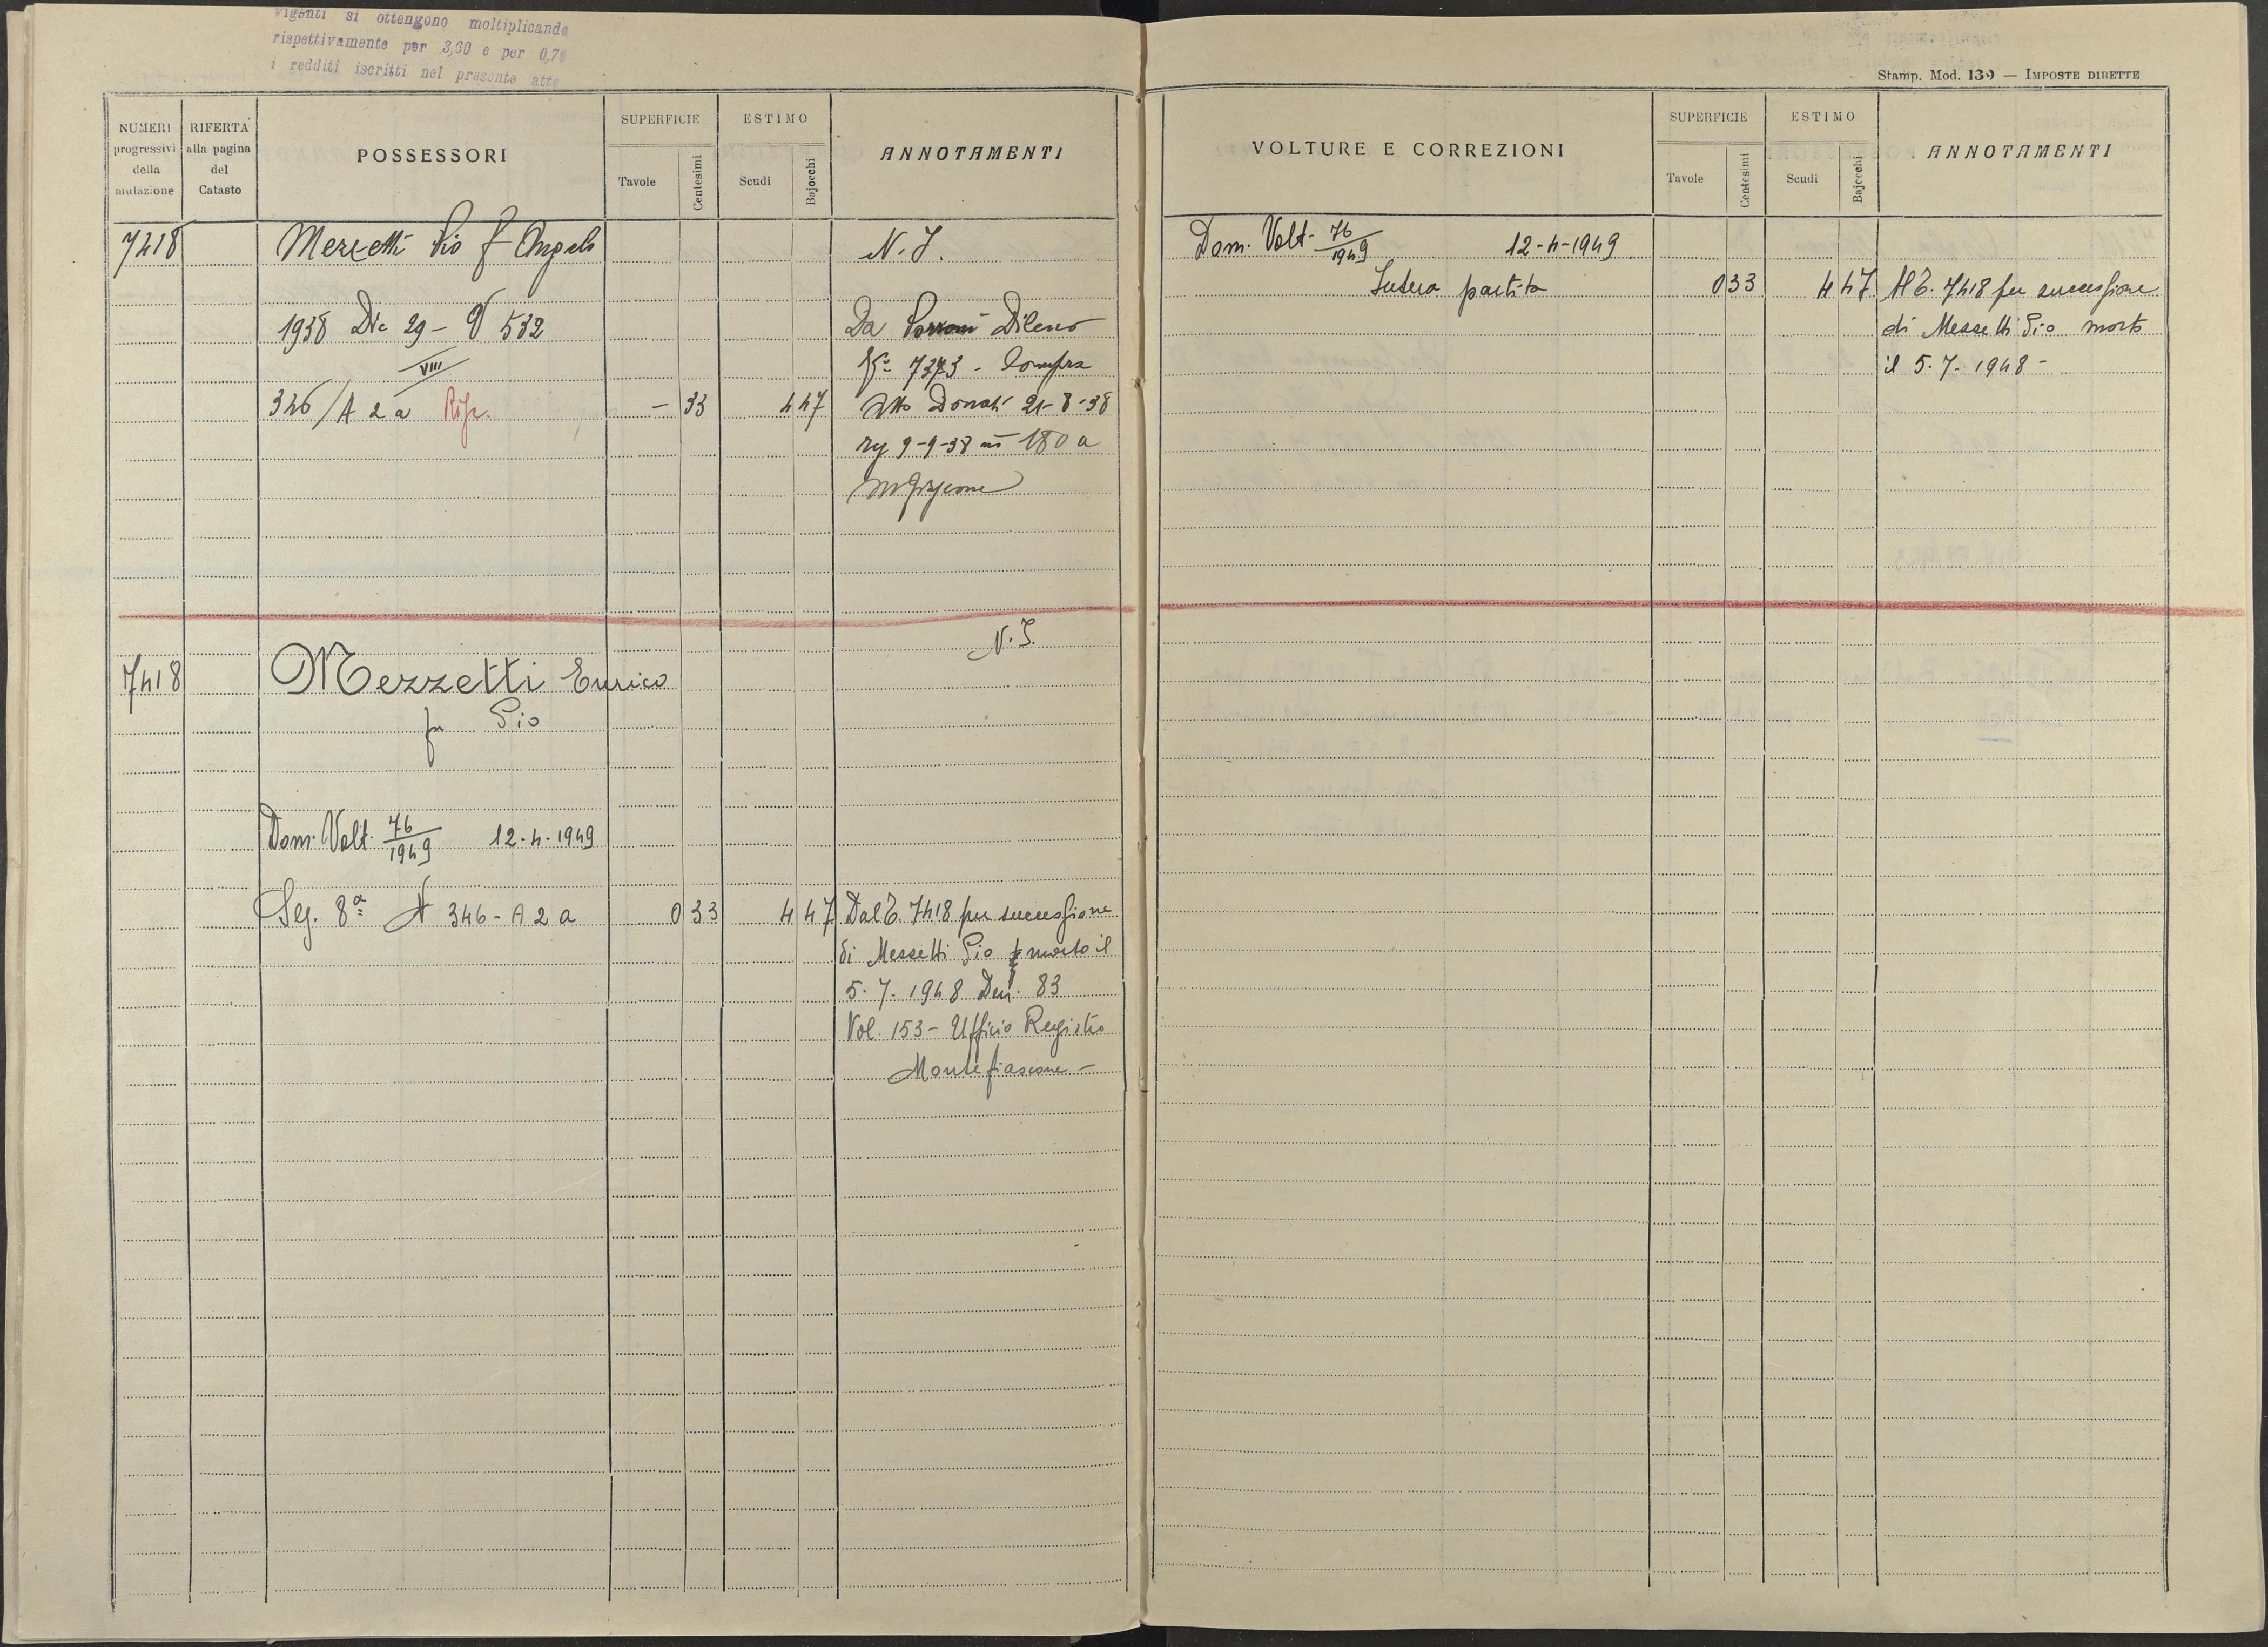 vigenti si ottengono moltiplicando
rispettivamente per 3,60 e per 0,70
i redditi iscritti nel presente atto
NUMERI progressivi della mutazione
RIFERTA alla pagina del Catasto
POSSESSORI
SUPERFICIE
Tavole
Centesimi
ESTIMO
Scudi
Bajocchi
ANNOTAMENTI
7418 Mezzetti Pio f Angelo N. I.
1938 Dic 29 - V 532 Da Dileno
VIII No 7373 - Compra
346/A 2 a Rife. - 33 4 47 Atto Donati 21-8-38
rg 9-9-38 n 180 a
Mfiascone
N. I.
7418 Mezzetti Enrico
fu Pio
Dom. Volt. 76/1949 12-4-1949
Sez. 8ª N 346 - A 2 a 0 33 4 47 Dal T. 7418 per successione
di Messetti Pio morto il
5.7.1948 Den. 83
Vol. 153 - Ufficio Registro
Montefiascone -
Stamp. Mod. 139 — IMPOSTE DIRETTE
VOLTURE E CORREZIONI
SUPERFICIE
Tavole
Centesimi
ESTIMO
Scudi
Bajocchi
ANNOTAMENTI
Dom. Volt. 76/1949 12-4-1949
Intera partita 0 33 4 47 Al T. 7418 per successione
di Messetti Pio morto
il 5.7.1948 -